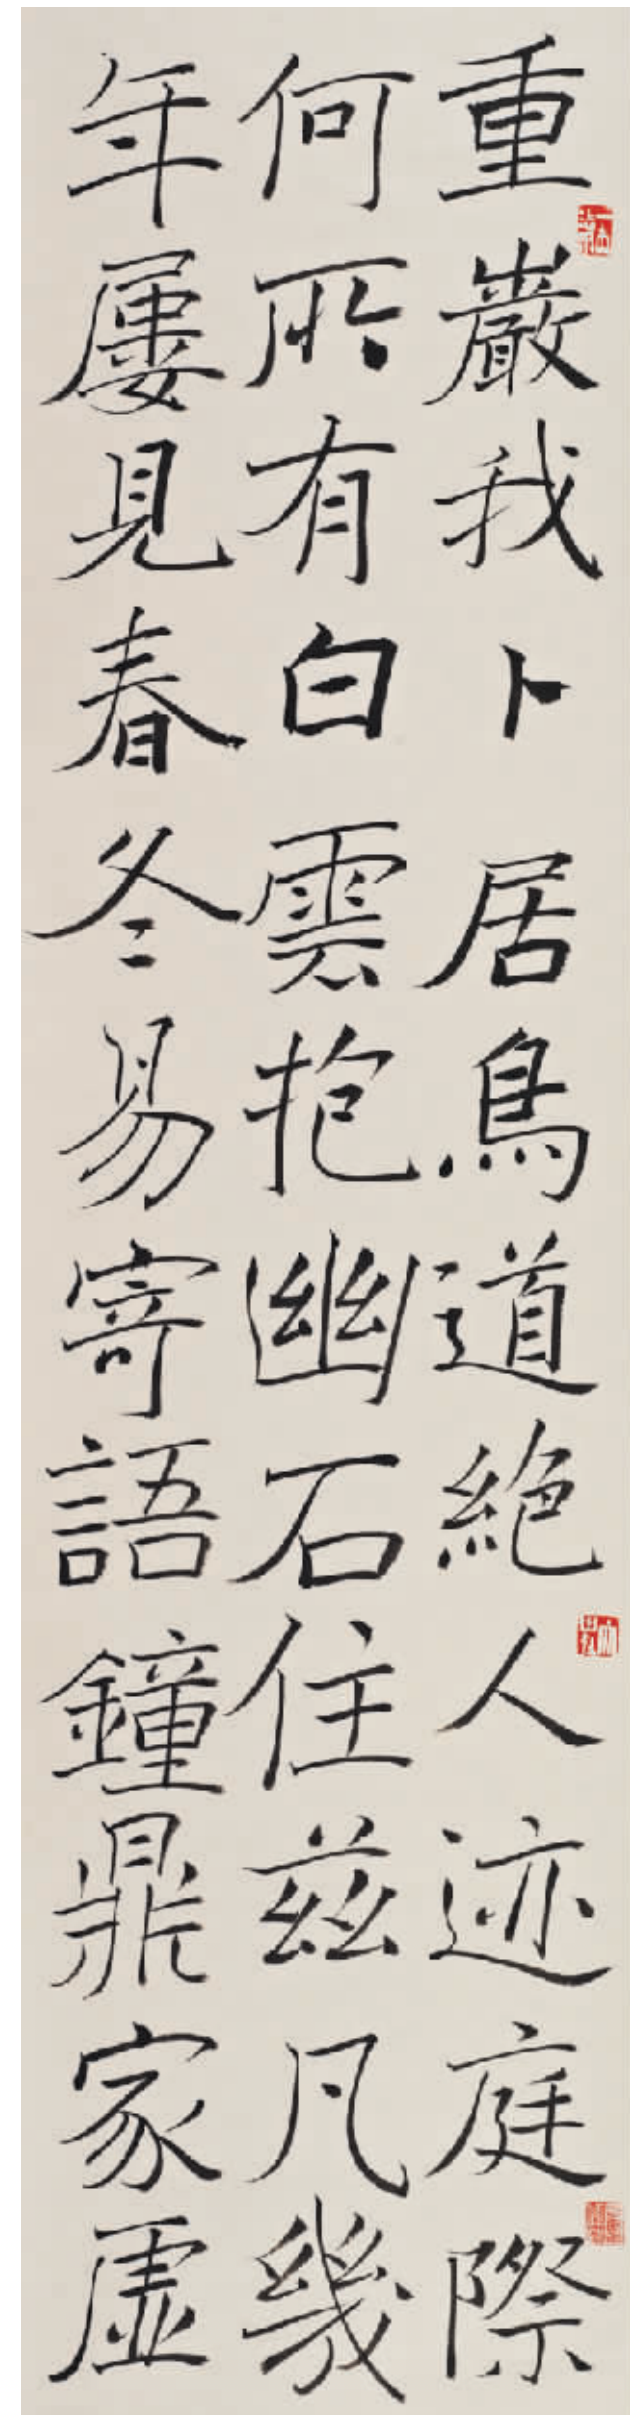 重巖我卜居鳥道絶人迹庭際
何所有白雲抱幽石住兹凡幾
年屢見春冬易寄語鐘鼎家虛